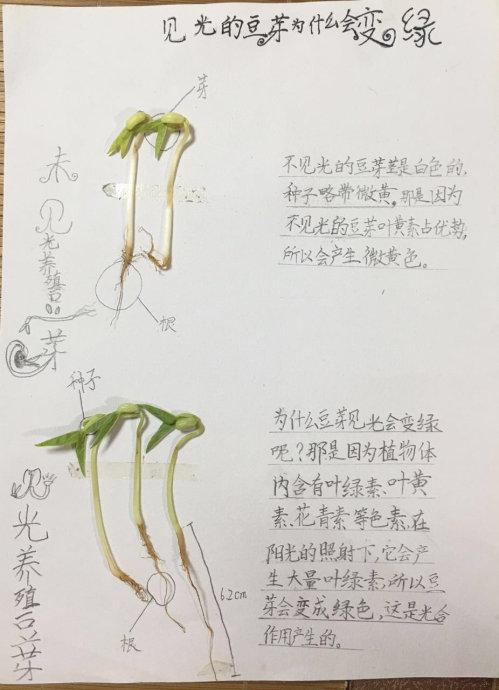 见光的豆芽为什么会变绿
芽
未见光养殖豆芽
根
不见光的豆芽茎是白色的,
种子略带微黄,那是因为
不见光的豆芽叶黄素占优势,
所以会产生微黄色。
种子
见光养殖豆芽
根
6.2cm
为什么豆芽见光会变绿
呢?那是因为植物体
内含有叶绿素、叶黄
素、花青素等色素,在
阳光的照射下,它会产
生大量叶绿素,所以豆
芽会变成绿色,这是光合
作用产生的。